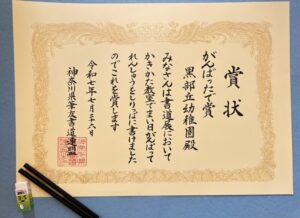 賞状
がんばったで賞
黒部丘幼稚園殿
みなさんは書道展において
かきかた教室でまい日がんばって
れんしゅうをしりっぱに書けました
のでこれを賞します
令和七年七月二十六日
神奈川県筆友書道連盟